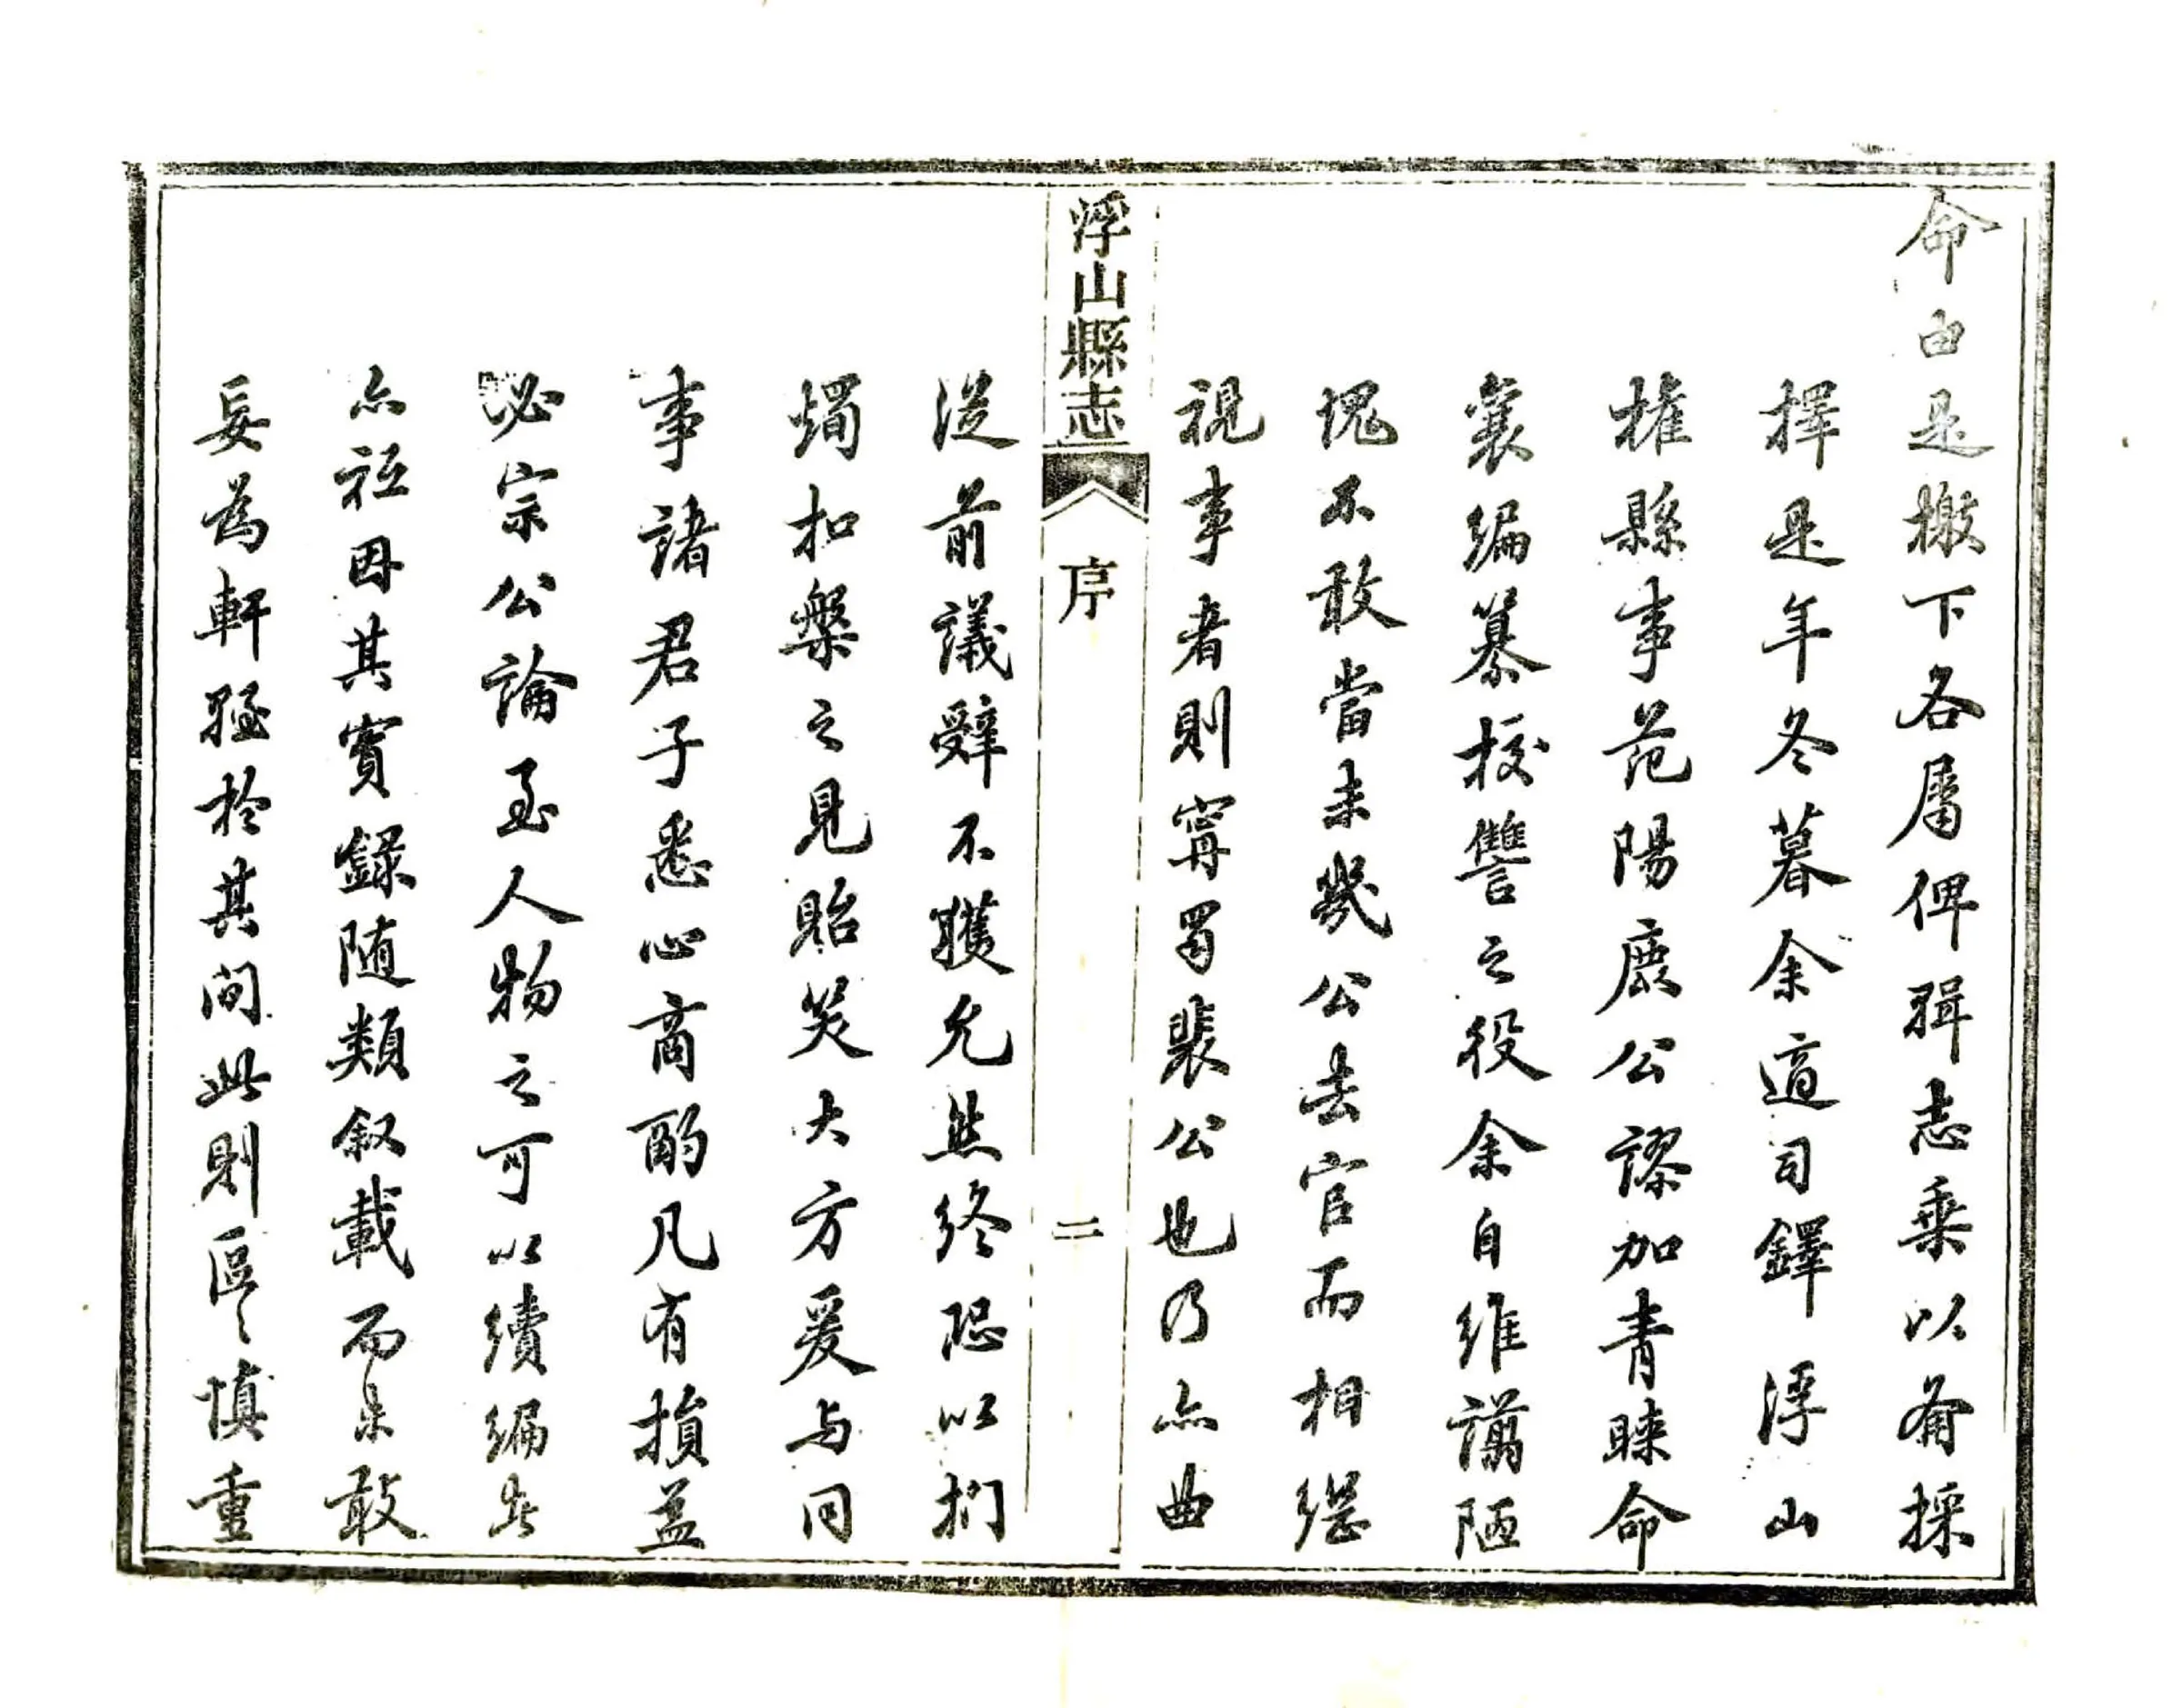 命由是檄下各屬俾輯志乘以备採
擇是年冬暮余適司鐸浮山
権縣事范陽鹿公謬加青睞命
襄編纂挍讐之役余自維譾陋
愧不敢當未幾公去官而相繼
視事者則甯蜀裴公也乃亦曲
浮山縣志
序
二
從前議辞不獲允然終恐以捫
燭扣槃之見貽笑大方爰与同
事諸君子悉心商酌凡有損益
必宗公論至人物之可以續編此
亦祗因其實錄随類叙載而未敢
妄為軒輊於其间此則區〻慎重